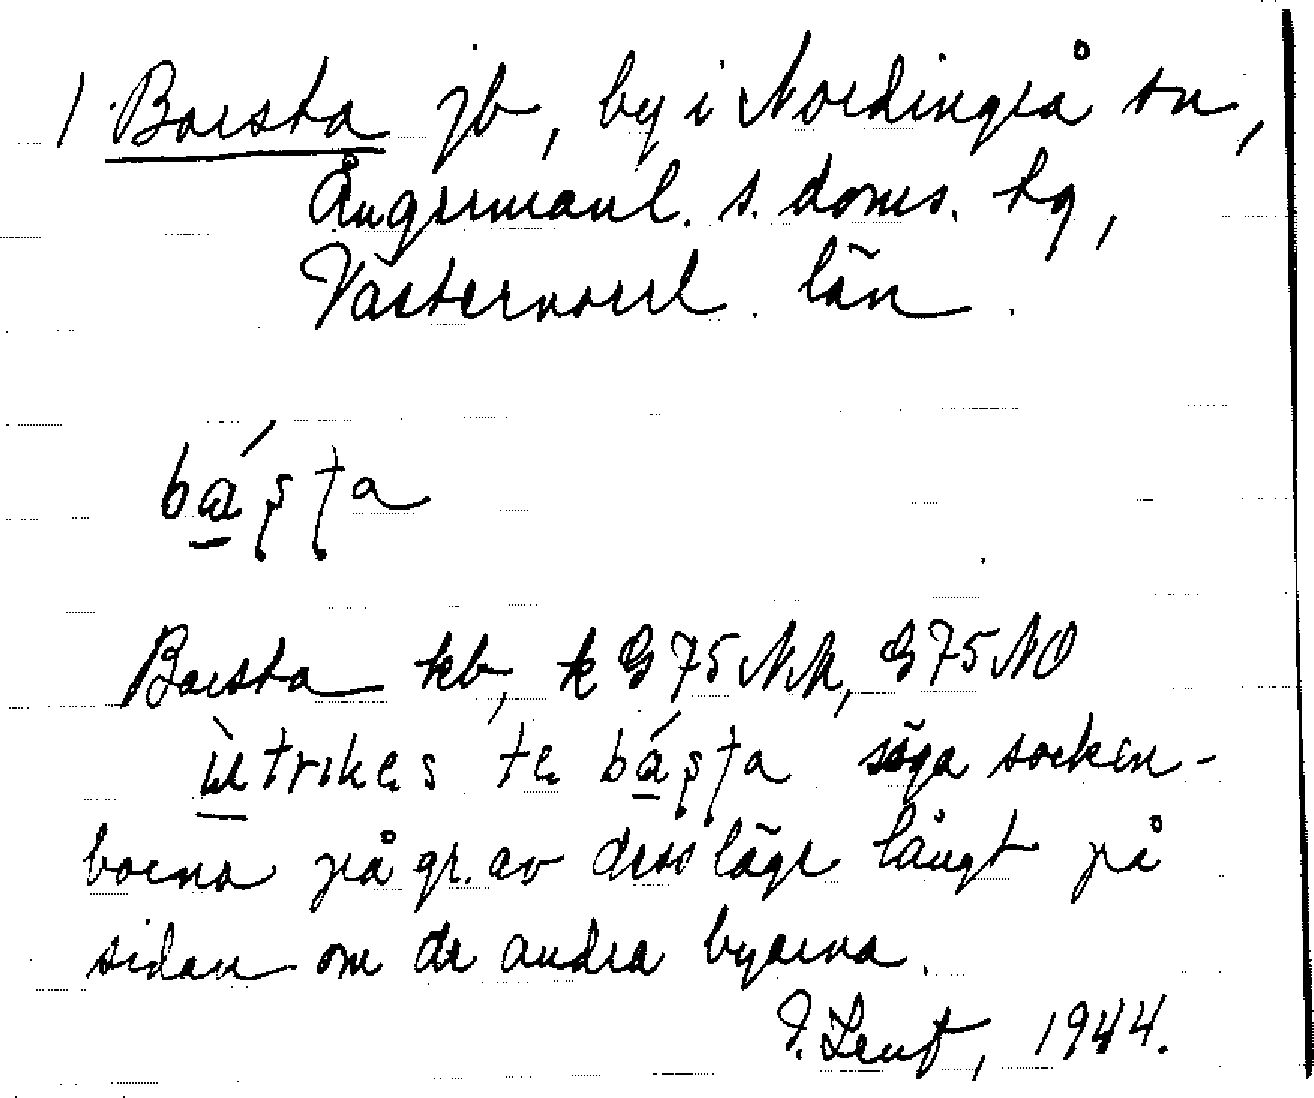 1 Barsta jb, by i Nordingrå sn,
Ångermanl. s. doms. tg,
Västernorrl. län.
bá̱ʂʈa
Barsta kb, k G75NV, G75NO
ùtrikəs tə bá̱ʂʈa säga socken-
borna på gr. av dess läge långt på
sidan om de andra byarna.
I. Lent, 1944.